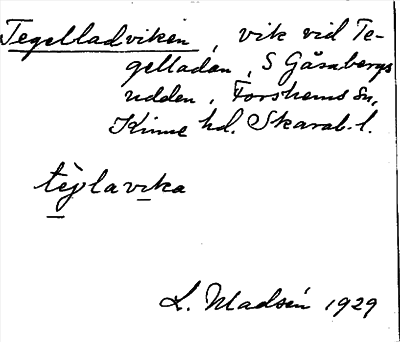 Tegelladviken, vik vid Te-
gelladan, S Gåsabergs
udden, Forshems sn,
Kinne hd. Skarab. l.
tèjlavika
L. Madsén 1929